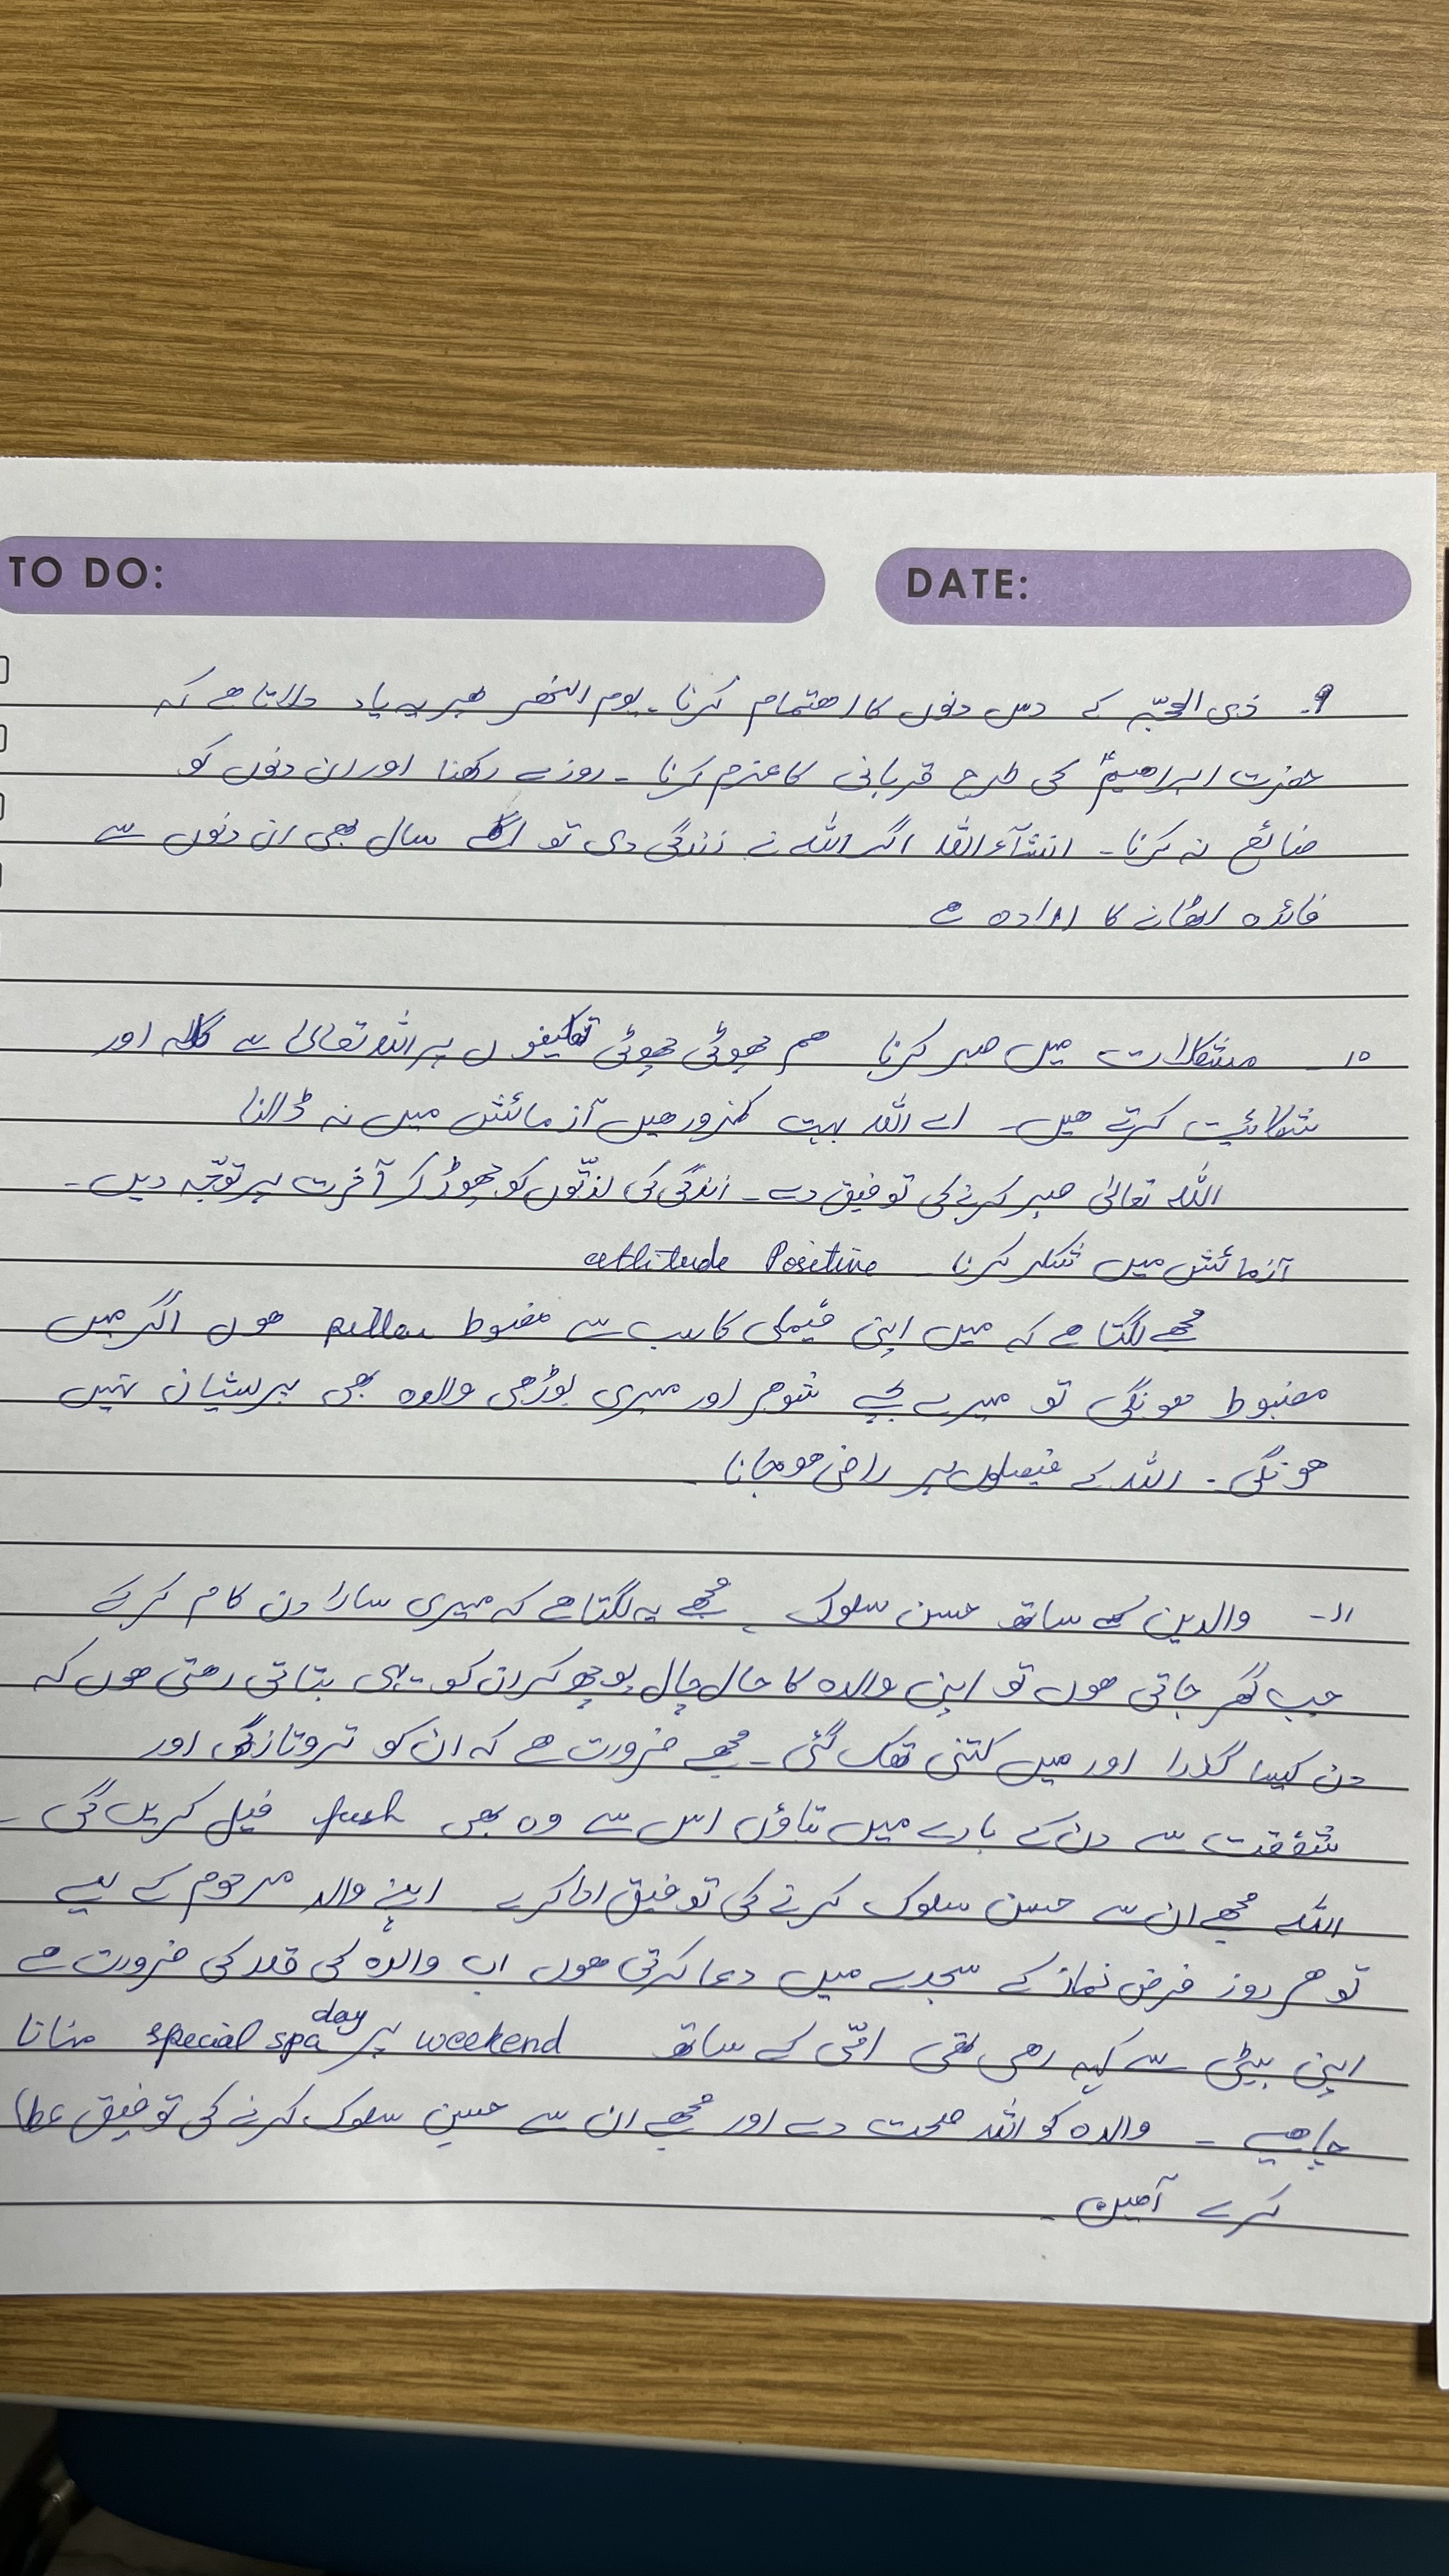 TO DO:
DATE:
9. ذی الحجّہ کے دس دنوں کا اھتمام کرنا۔ یوم النحر پر یہ یاد دلاتا ھے کہ
حضرت ابراھیمؑ کی طرح قربانی کا عزم کرنا ۔ روزے رکھنا اور ان دنوں کو
ضائع نہ کرنا ۔ انشآءاللہ اگر اللہ نے زندگی دی تو اگلے سال بھی ان دنوں سے
فائدہ اٹھانے کا ارادہ ھے
۱۰۔ مشکلات میں صبر کرنا ھم چھوٹی چھوٹی تکلیفوں پر اللہ تعالٰی سے گلہ اور
شکائیت کرتے ھیں۔ اے اللہ بہت کمزور ھیں آزمائش میں نہ ڈالنا
اللہ تعالٰی صبر کرنے کی توفیق دے ۔ زندگی کی لذّتوں کو چھوڑ کر آخرت پر توجّہ دیں۔
آزمائش میں شکر کرنا ۔ attitude Positive
مجھے لگتا ھے کہ میں اپنی فیملی کا سب سے مضبوط pillar ھوں اگر میں
مضبوط ھونگی تو میرے بچے شوہر اور میری بوڑھی والدہ بھی پریشان نہیں
ھونگی۔ اللہ کے فیصلوں پر راضی ھو جانا۔
۱۱۔ والدین کے ساتھ حسن سلوک ۔ مجھے یہ لگتا ھے کہ میری سارا دن کام کر کے
جب گھر جاتی ھوں تو اپنی والدہ کا حال چال پوچھ کر ان کو یہی بتاتی رھتی ھوں کہ
دن کیسا گذرا اور میں کتنی تھک گئی ۔ مجھے ضرورت ھے کہ ان کو تروتازگی اور
شفقت سے دن کے بارے میں بتاؤں اس سے وہ بھی fresh فیل کریں گی۔
اللہ مجھے ان سے حسن سلوک کرنے کی توفیق ادا کرے۔ اپنے والد مرحوم کے لیے
تو ھر روز فرض نماز کے سجدے میں دعا کرتی ھوں اب والدہ کی قدر کی ضرورت ھے
اپنی بیٹی سے کہہ رھی تھی امّی کے ساتھ weekend پر special spa day منانا
چاھیے ۔ والدہ کو اللہ صحت دے اور مجھے ان سے حسن سلوک کرنے کی توفیق عطا
کرے آمین۔